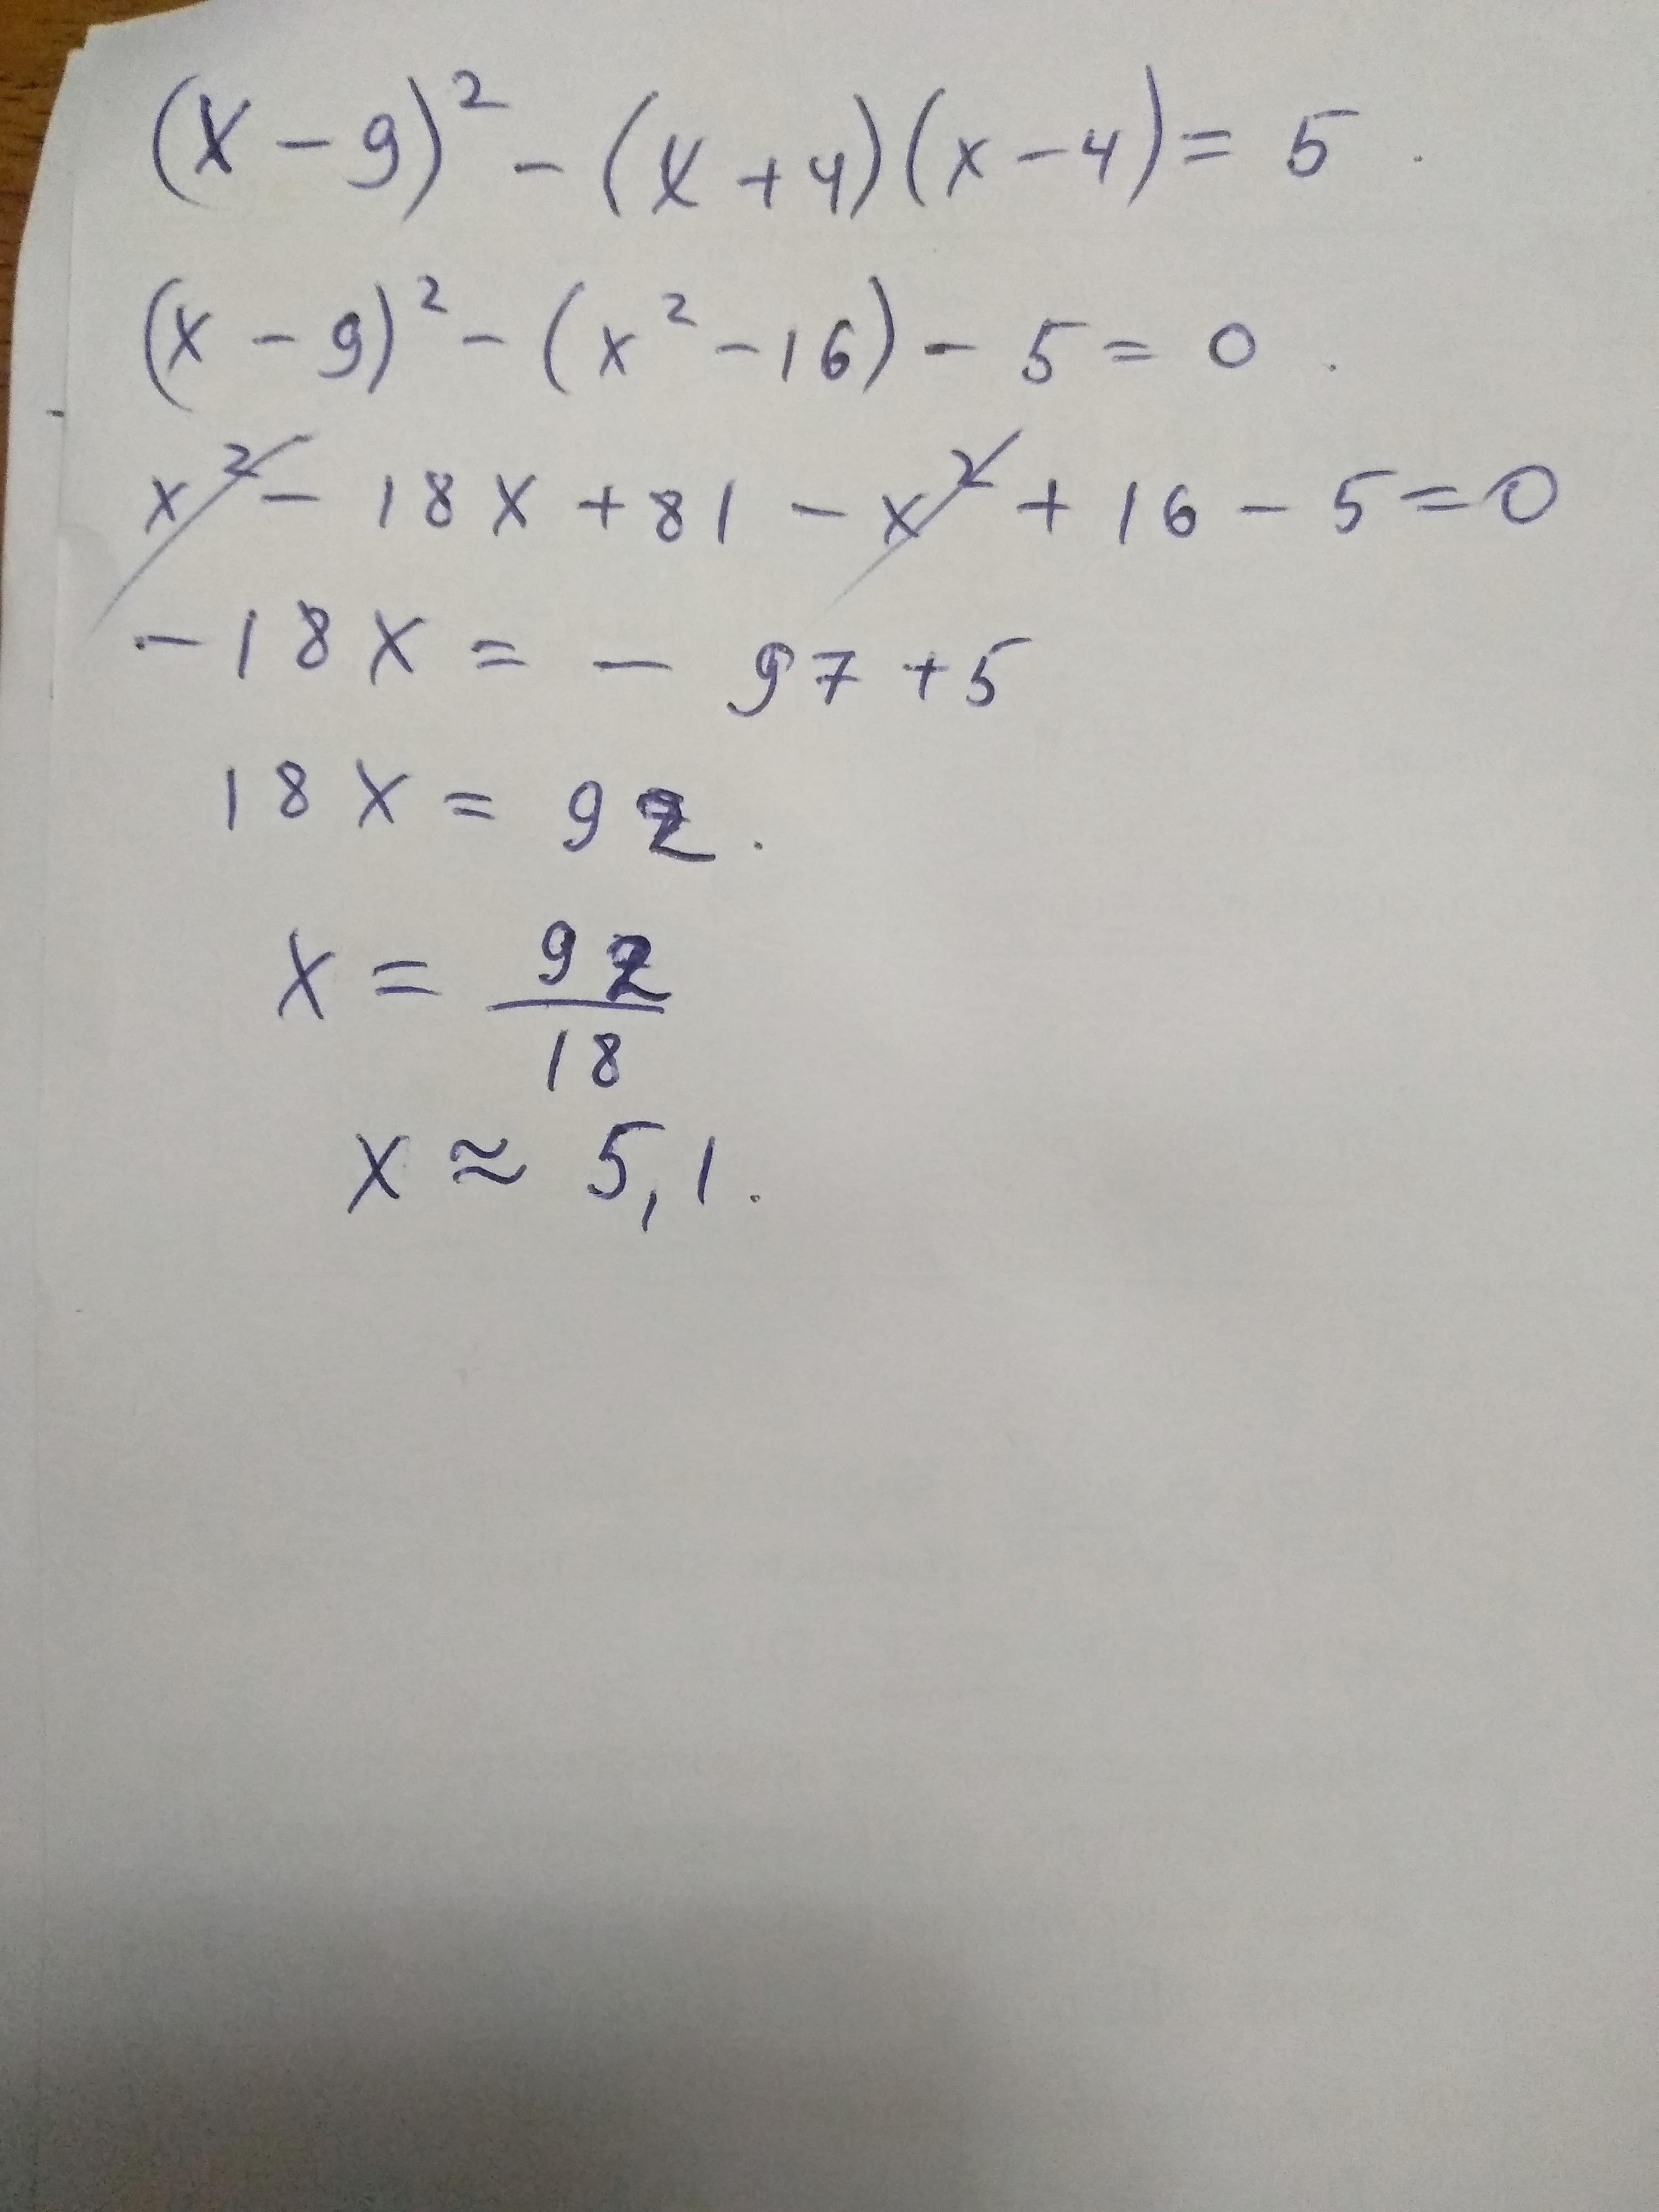 (x - 9)² - (x + 4)(x - 4) = 5 .
(x - 9)² - (x² - 16) - 5 = 0 .
x² - 18x + 81 - x² + 16 - 5 = 0
- 18x = - 97 + 5
18x = 92 .
x = 92/18
x ≈ 5,1 .